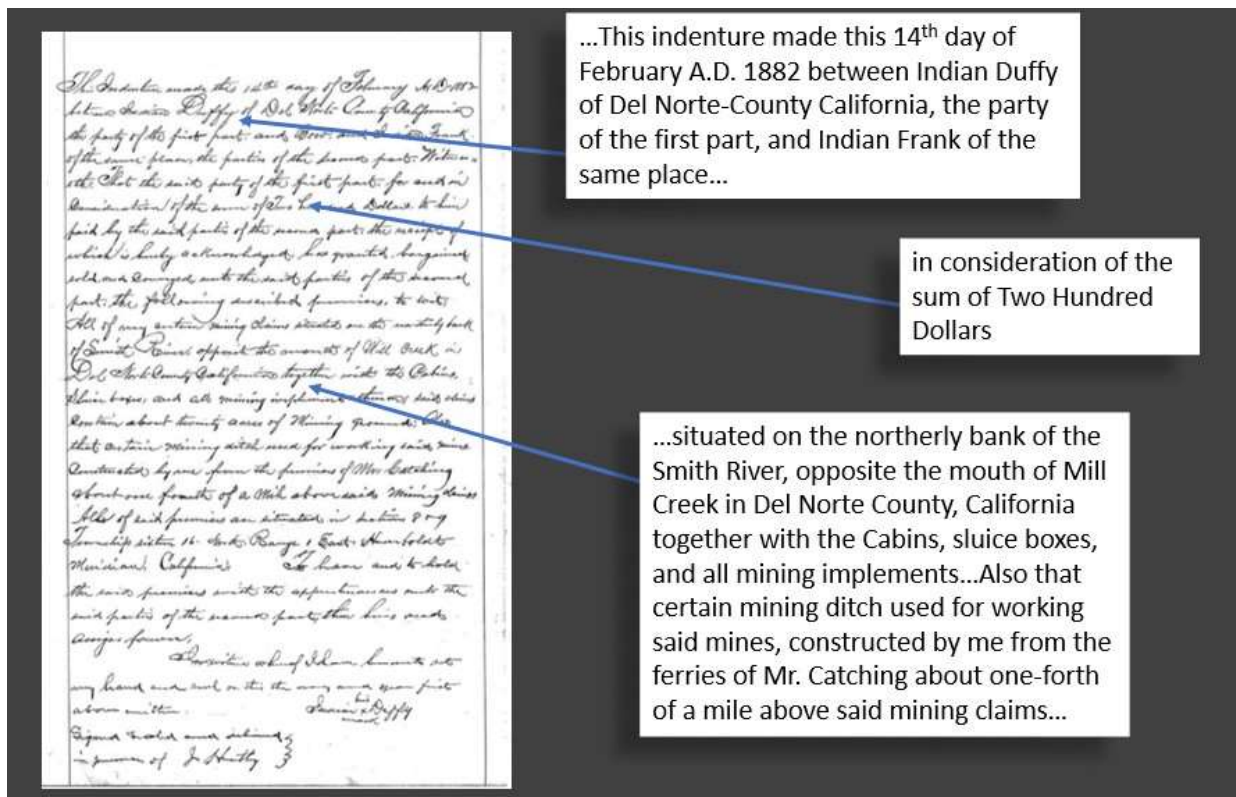 This Indenture made this 14th day of February A.D. 1882
between Indian Duffy of Del Norte County California
the party of the first part, and and Indian Frank
of the same place, the parties of the second part. Witness-
eth: That the said party of the first part, for and in
Consideration of the sum of Two hundred Dollars to him
paid by the said parties of the second part, the receipt of
which is hereby acknowledged, has granted, bargained
sold and Conveyed unto the said parties of the second
part, the following described premises, to wit,
All of my certain mining claims situated on the northerly bank
of Smith River opposite the mouth of Mill Creek in
Del Norte County California together with the Cabins,
Sluice boxes, and all mining implements said claims
Contain about twenty acres of Mining ground. Also
that certain mining ditch used for working said mine
Constructed by me from the of Mr Catching
about one fourth of a Mile above said Mining claims
All of said premises are situated in Section 8 &
Township 16 North Range 1 East Humboldt
Meridian, California To have and to hold
the said premises with the appurtenances unto the
said parties of the second part, their heirs and
assigns forever.
In witness whereof I have hereunto set
my hand and seal on this the day and year first
above written.
his
Indian x Duffy
mark
Signed Sealed and delivered
in presence of J
…This indenture made this 14th day of
February A.D. 1882 between Indian Duffy
of Del Norte-County California, the party
of the first part, and Indian Frank of the
same place…
in consideration of the
sum of Two Hundred
Dollars
…situated on the northerly bank of the
Smith River, opposite the mouth of Mill
Creek in Del Norte County, California
together with the Cabins, sluice boxes,
and all mining implements…Also that
certain mining ditch used for working
said mines, constructed by me from the
ferries of Mr. Catching about one-forth
of a mile above said mining claims…